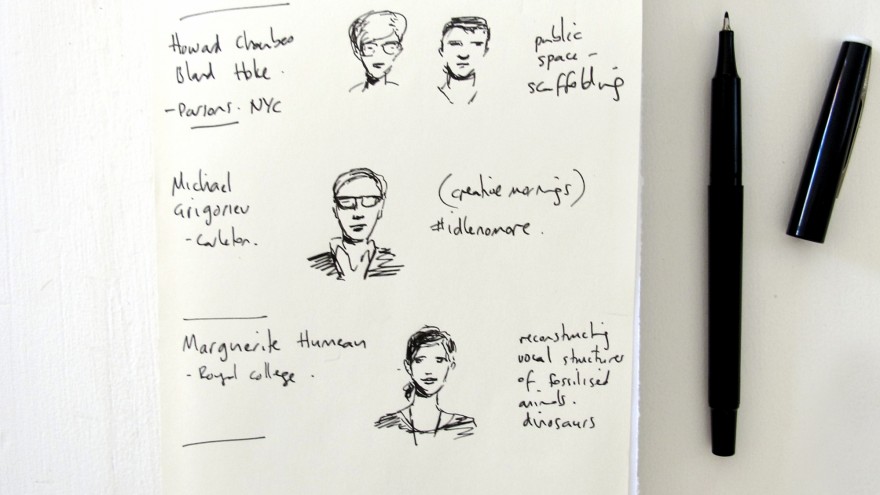 Howard Chambers
Bland Hoke.
- Parsons. NYC
public
space -
scaffolding
Michael
Grigoriev
- Carleton.
(creative mornings)
#idlenomore.
Marguerite Humeau
- Royal college.
reconstructing
vocal structures
of fossilised
animals.
dinosaurs